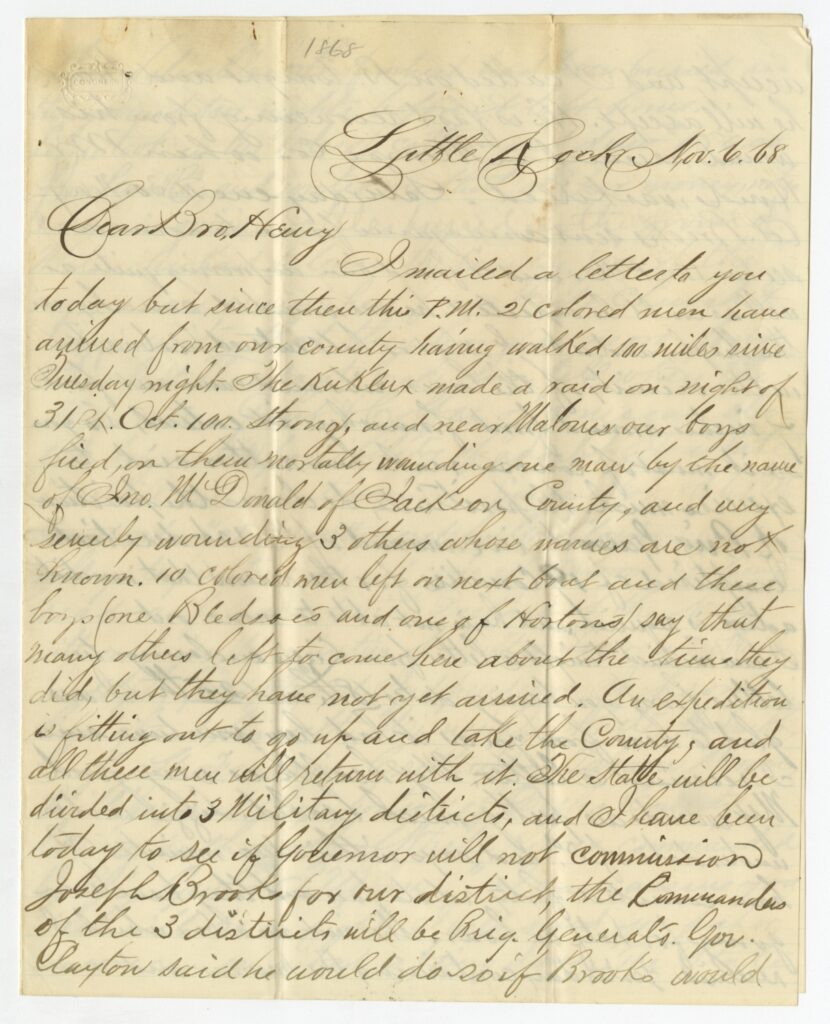 1868
Little Rock, Nov. 6. 68
Dear Bro, Henry
I mailed a letter to you
today but since then this P.M. 2 colored men have
arrived from our county having walked 100 miles since
Tuesday night. The KuKlux made a raid on night of
31st. Oct. 100. strong, and near Malones our boys
fired, on them mortally wounding one man by the name
of Jno. McDonald of Jackson County, and very
severly wounding 3 others whose names are not
known. 10 colored men left on next boat and these
boys (one Bledsoe's and one of Hortons) say that
many others left to come here about the time they
did, but they have not yet arrived. An expedition
is fitting out to go up and take the County, and
all these men will return with it. The State will be
divided into 3 Military districts, and I have been
today to see if Governor will not commission
Joseph Brooks for our district, the Commanders
of the 3 districts will be Brig. Generals. Gov.
Clayton said he would do so if Brooks would